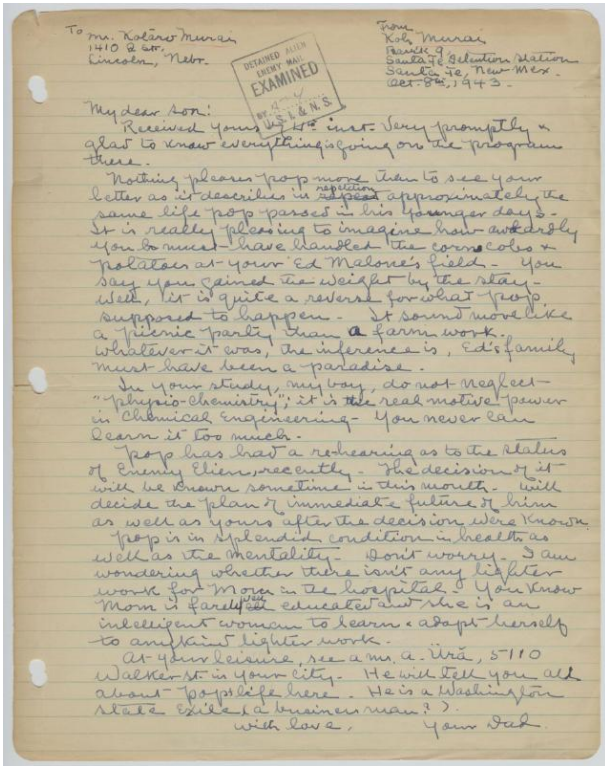 To Mr. Kotaro Murai
1410 Q St.
Lincoln, Nebr.
From
Koh Murai
Barrk 9,
Santa Fe Detention Station
Santa Fe, New Mex.
Oct. 8th, 1943.
DETAINED ALIEN
ENEMY MAIL
EXAMINED
BY
U.S.I. & N.S.
My dear son:
Received yours of inst. very promptly &
glad to know everything is going on the program
there.
Nothing pleases pop more than to see your
letter as it describes in repetition approximately the
same life pop passed in his younger days.
It is really pleasing to imagine how awardly
you boys must have handled the corncobs &
potatoes at your Ed Malone's field - You
say you gained the weight by the stay -
well, it is quite a reverse for what pop
supposed to happen - It sound more like
a picnic party than a farm work.
Whatever it was, the inference is, Ed's family
must have been a paradise.
In your study, my boy, do not neglect
"physio-chemistry"; it is the real motive power
in Chemical Engineering - You never can
learn it too much -
Pop has had a re-hearing as to the status
of Enemy Elien, recently - The decision of it
will be known sometime in this month - Will
decide the plan of immediate future of him
as well as yours after the decision were known.
Pop is in splendid condition in health as
well as the mentality - Don't worry - I am
wondering whether there isn't any lighter
work for Mom in the hospital - You know
Mom is well educated and she is an
intelligent woman to learn & adapt herself
to any kind lighter work.
At your leisure, see a Mr. A. Ura, 5110
Walker St. in your city - He will tell you all
about pop's life here. He is a Washington
State Exile (a business man?).
With love, Your Dad